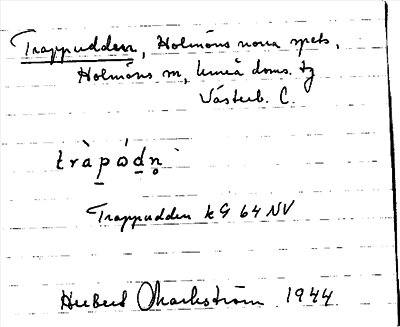 Trappudden, Holmöns norra spets,
Holmöns sn, Umeå doms. tg
Västerb. C.
tràpòdn̥
Trappudden kG 64 NV
Herbert Markström 1944